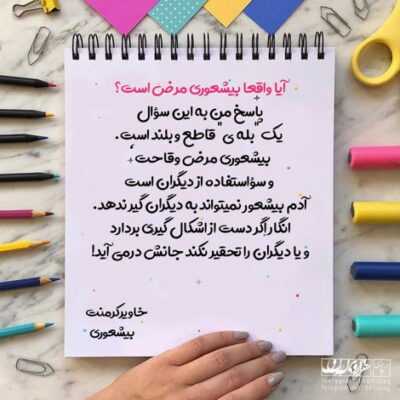 آیا واقعا بیشعوری مرض است؟
پاسخ من به این سؤال
یک "بله ی" قاطع و بلند است.
بیشعوری مرض وقاحت،
و سؤاستفاده از دیگران است
آدم بیشعور نمیتواند به دیگران گیر ندهد.
انگار اگر دست از اشکال گیری بردارد
و یا دیگران را تحقیر نکند جانش درمی آید!
خاویر کرمنت
بیشعوری